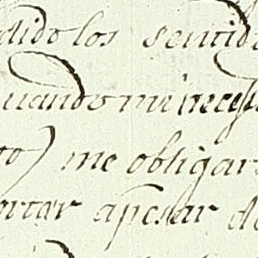 dido los sentid
uando me neces
to) me obligar
ortar apesar de